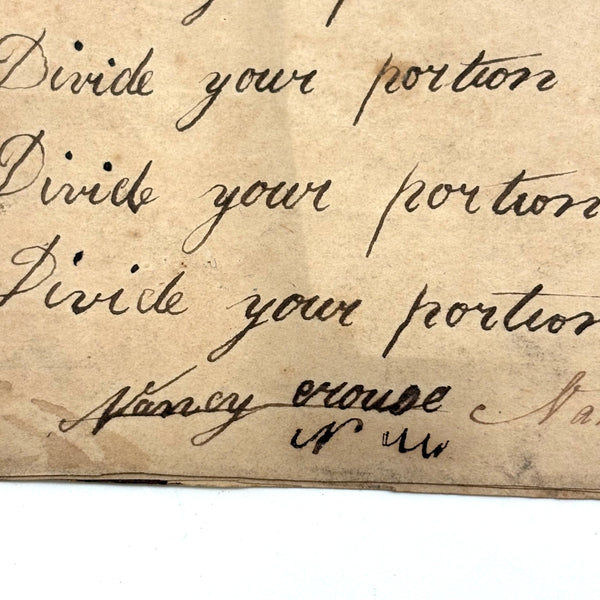 Divide your portion
Divide your portion
Divide your portion
Nancy crouse Na
N